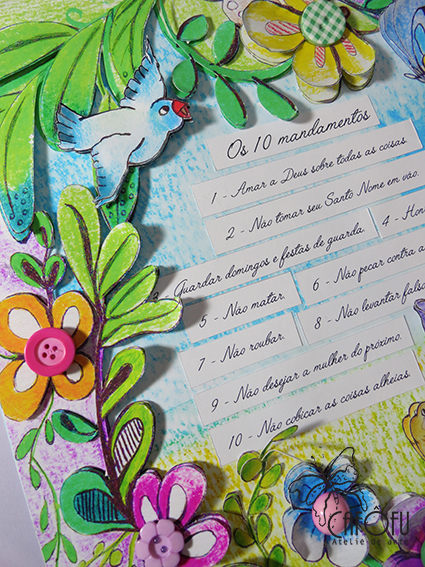 Os 10 mandamentos
1 - Amar a Deus sobre todas as coisas.
2 - Não tomar seu Santo Nome em vão.
Guardar domingos e festas de guarda. 4 -
5 - Não matar. 6 - Não pecar contra a
7 - Não roubar. 8 - Não levantar
9 - Não desejar a mulher do próximo.
10 - Não cobiçar as coisas alheias.
Ateliê de arte